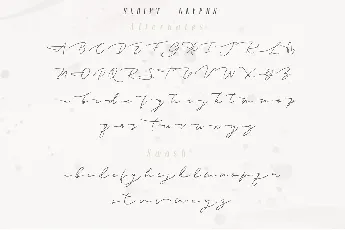 SCRIPT GLYPHS
Alternates
A B C D E F G H I J K L M
N O P Q R S T U V W X Y Z
a b c d e f g h i j k l m n o p
q r s t u v w x y z
Swash
a b c d e f g h i j k l m n o p q r
s t u v w x y z